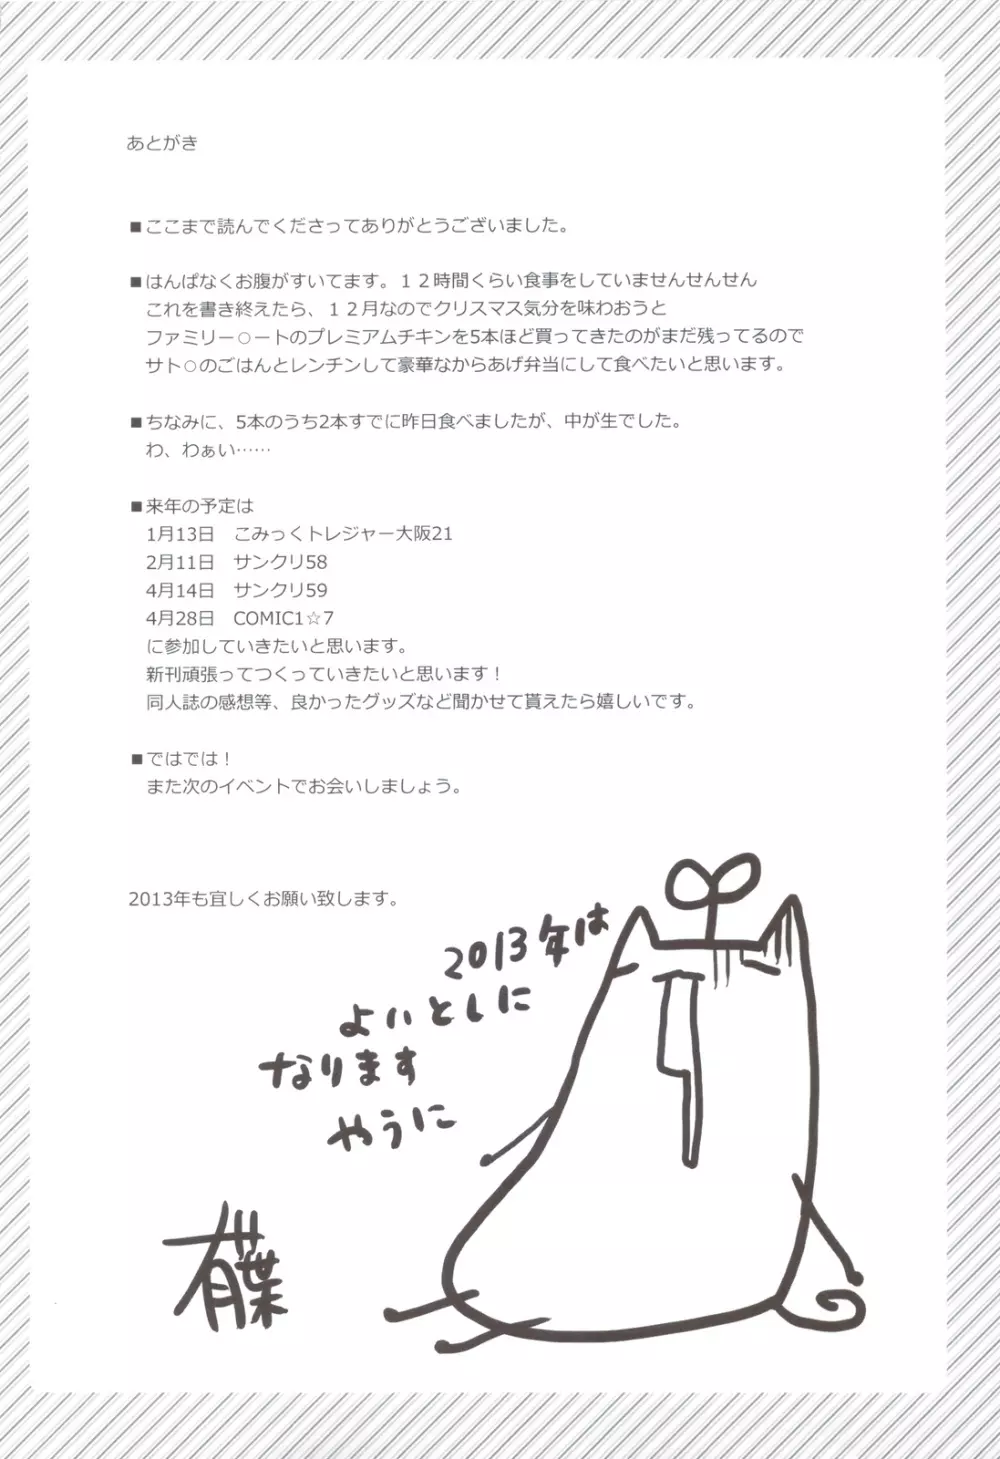 あとがき
■ここまで読んでくださってありがとうございました。
■はんぱなくお腹がすいてます。１２時間くらい食事をしていませんせんせん
これを書き終えたら、１２月なのでクリスマス気分を味わおうと
ファミリー○ートのプレミアムチキンを5本ほど買ってきたのがまだ残ってるので
サト○のごはんとレンチンして豪華なからあげ弁当にして食べたいと思います。
■ちなみに、5本のうち2本すでに昨日食べましたが、中が生でした。
わ、わぁい……
■来年の予定は
1月13日　こみっくトレジャー大阪21
2月11日　サンクリ58
4月14日　サンクリ59
4月28日　COMIC1☆7
に参加していきたいと思います。
新刊頑張ってつくっていきたいと思います！
同人誌の感想等、良かったグッズなど聞かせて貰えたら嬉しいです。
■ではでは！
また次のイベントでお会いしましょう。
2013年も宜しくお願い致します。
2013年は
よいとしに
なります
やうに
有葉